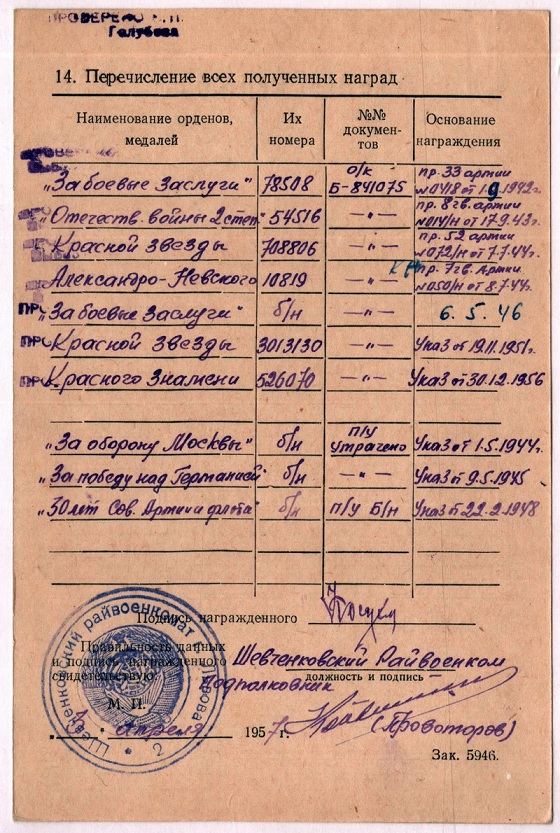 ПРОВЕРЕНО
Голубева
14. Перечисление всех полученных наград
Наименование орденов, медалей
Их номера
№№ документов
Основание награждения
„За боевые Заслуги" 78508 о/к Б-841075 пр. 33 армии №0418 от 1.9.1942г.
„Отечеств. войны 2 степ" 54516 —"— пр. 8гв. армии №014/н от 17.9.43г.
Красной Звезды 708806 —"— пр. 52 армии №072/н от 7.7.44г.
Александро-Невского 10819 —"— пр. 7гв. Армии №050/н от 8.7.44г.
„За боевые Заслуги" б/н —"— 6.5.46
Красной Звезды 3013130 —"— Указ от 19.11.1951г.
Красного Знамени 526070 —"— Указ от 30.12.1956
„За оборону Москвы" б/н п/у утрачено Указ от 1.5.1944г.
„За победу над Германией" б/н —"— Указ от 9.5.1945
„30 лет Сов. Армии и флота" б/н п/у б/н Указ от 22.2.1948
Подпись награжденного
Правильность данных
и подпись награжденного
свидетельствую:
Шевченковский Райвоенком
Подполковник
должность и подпись
М. П.
(Провоторов)
3 апреля 1957 г.
Зак. 5946.
Шевченковский райвоенкомат г. Львова